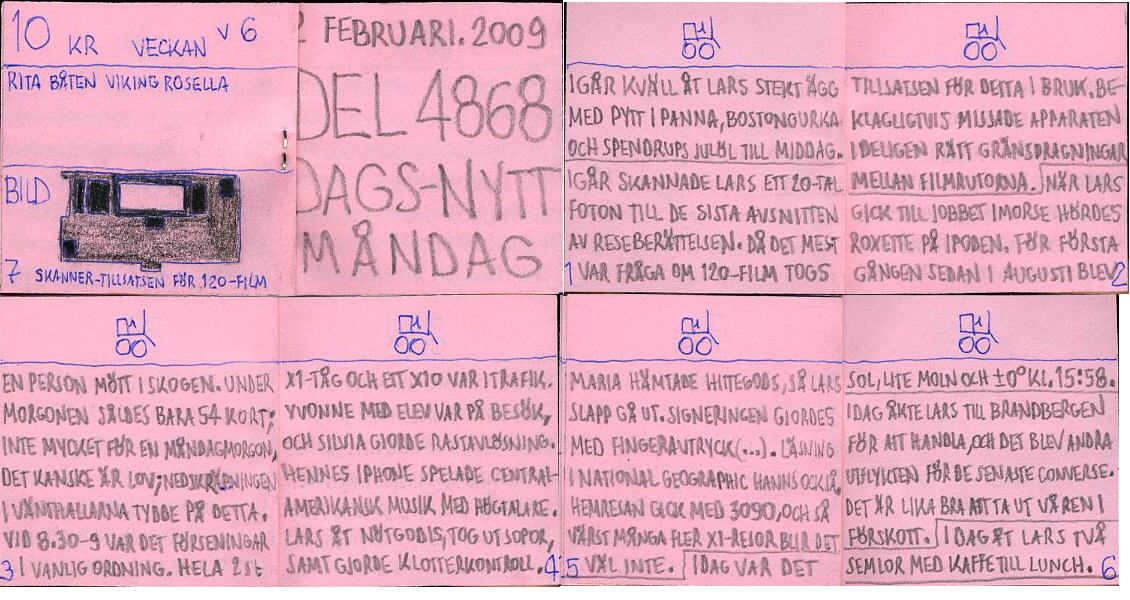 10 KR VECKAN V 6
RITA BÅTEN VIKING ROSELLA
BILD
7 SKANNER-TILLSATSEN FÖR 120-FILM
2 FEBRUARI. 2009
DEL 4868
DAGS-NYTT
MÅNDAG
IGÅR KVÄLL ÅT LARS STEKT ÄGG
MED PYTT I PANNA, BOSTONGURKA
OCH SPENDRUPS JULÖL TILL MIDDAG.
IGÅR SKANNADE LARS ETT 20-TAL
FOTON TILL DE SISTA AVSNITTEN
AV RESEBERÄTTELSEN. DÅ DET MEST
1 VAR FRÅGA OM 120-FILM TOGS
TILLSATSEN FÖR DETTA I BRUK. BE-
KLAGLIGTVIS MISSADE APPARATEN
IDELIGEN RÄTT GRÄNSDRAGNINGAR
MELLAN FILMRUTORNA. NÄR LARS
GICK TILL JOBBET IMORSE HÖRDES
ROXETTE PÅ IPODEN. FÖR FÖRSTA
GÅNGEN SEDAN I AUGUSTI BLEV 2
EN PERSON MÖTT I SKOGEN. UNDER
MORGONEN SÅLDES BARA 54 KORT;
INTE MYCKET FÖR EN MÅNDAGMORGON,
DET KANSKE ÄR LOV; NEDSKRÄPNINGEN
I VÄNTHALLARNA TYDDE PÅ DETTA.
VID 8.30-9 VAR DET FÖRSENINGAR
3 I VANLIG ORDNING. HELA 2 st
X1-TÅG OCH ETT X10 VAR I TRAFIK.
YVONNE MED ELEV VAR PÅ BESÖK,
OCH SILVIA GJORDE RASTAVLÖSNING.
HENNES IPHONE SPELADE CENTRAL-
AMERIKANSK MUSIK MED HÖGTALARE.
LARS ÅT NÖTGODIS, TOG UT SOPOR,
SAMT GJORDE KLOTTERKONTROLL. 4
MARIA HÄMTADE HITTEGODS, SÅ LARS
SLAPP GÅ UT. SIGNERINGEN GJORDES
MED FINGERAVTRYCK(...). LÄSNING
I NATIONAL GEOGRAPHIC HANNS OCKSÅ.
HEMRESAN GICK MED 3090, OCH SÅ
VÄRST MÅNGA FLER X1-RESOR BLIR DET
5 VÄL INTE. IDAG VAR DET
SOL, LITE MOLN OCH ±0° KL. 15:58.
IDAG ÅKTE LARS TILL BRANDBERGEN
FÖR ATT HANDLA, OCH DET BLEV ANDRA
UTFLYKTEN FÖR DE SENASTE CONVERSE.
DET ÄR LIKA BRA ATT TA UT VÅREN I
FÖRSKOTT. IDAG ÅT LARS TVÅ
SEMLOR MED KAFFE TILL LUNCH. 6